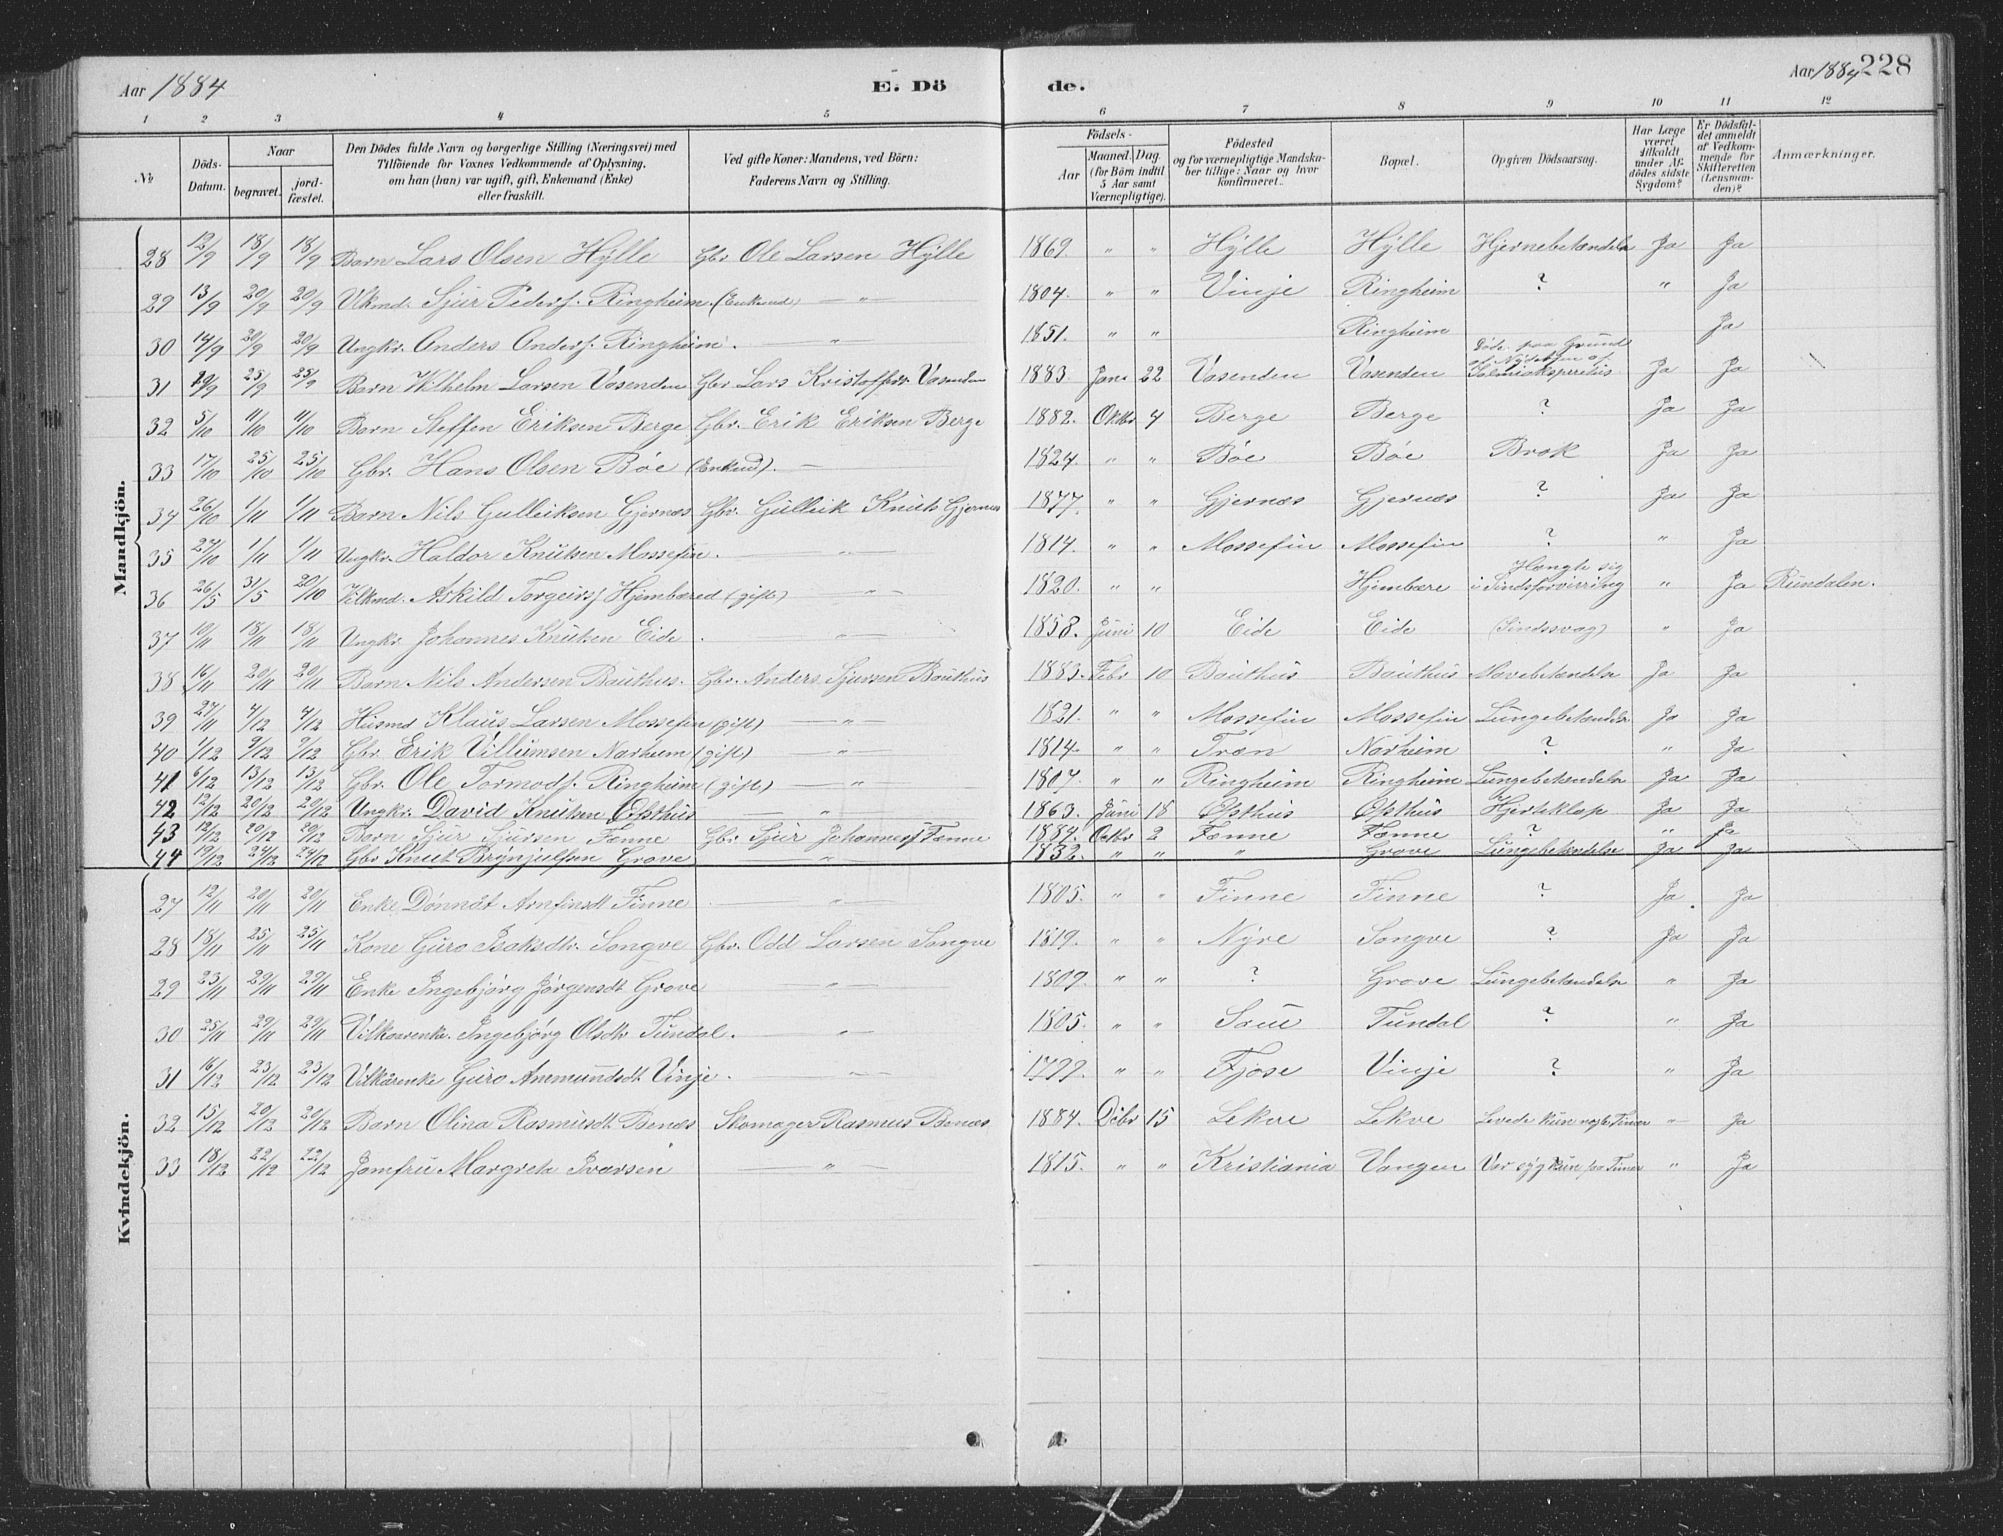 Aar 1884 E. Dö de. Aar 1884 228
1 2 3 4 5 6 7 8 9 10 11 12
№ Döds-Datum. Naar begravet. jord-fæstet. Den Dödes fulde Navn og borgerlige Stilling (Næringsvei) med Tilföiende for Voxnes Vedkommende af Oplysning, om han (hun) var ugift, gift, Enkemand (Enke) eller fraskilt. Ved gifte Koner: Mandens, ved Börn: Faderens Navn og Stilling. Födsels- Aar Maaned. Dag. (for Börn indtil 5 Aar samt Værnepligtige). Födested og for værnepligtige Mandskaber tillige: Naar og hvor konfirmeret. Bopæl. Opgiven Dödsaarsag. Har Læge været tilkaldt under Afdödes sidste Sygdom? Er Dödsfaldet anmeldt af Vedkommende for Skifteretten (Lensmanden)? Anmærkninger.
Mandkjön.
28 12/9 18/9 18/9 Barn Lars Olsen Hylle Gbr Ole Larsen Hylle 1869. " " Hylle Hylle Hjernebetændelse Ja Ja
29 13/9 20/9 20/9 Vikmd. Sjur Peders. Ringheim. (Enkemd) — " — 1804. " " Vinje Ringheim ? " Ja
30 14/9 20/9 20/9 Ungkr. Anders Anders. Ringheim. — " — 1851. " " Ringheim Ja
31 19/9 25/9 25/9 Barn Vilhelm Larsen Vasenden Gbr Lars Kristoffers. Vasenden 1883. Jan. 22 Vasenden Vasenden Döde paa Grund af Nydelsen af Salmiakspiritus Ja Ja
32 5/10 11/10 11/10 Barn Steffen Eriksen Berge Gbr. Erik Eriksen Berge 1882. Oktbr 4 Berge Berge ? Ja Ja
33 17/10 25/10 25/10 Gbr. Hans Olsen Bøe (Enkmd). — 1824. " " Bøe Bøe Brok Ja Ja
34 26/10 1/11 1/11 Barn Nils Gulleiksen Gjernæs Gbr. Gulleik Knuts. Gjernæs 1877. " " Gjernæs Gjernæs ? Ja Ja
35 27/10 1/11 1/11 Ungkr. Haldor Knutsen Mossefin. — " — 1814. " " Mossefin Mossefin ? " Ja
36 26/5 31/5 20/10 Vilkmd. Askild Torgeirs. Hjembæred (gift) — " — 1820. " " Hjembære Hængte sig i Sindsforvirring " Ja Rundalen.
37 10/11 18/11 18/11 Ungkr Johannes Knutsen Eide . — " — 1858. Juni 10 Eide Eide (Sindssvag) " Ja
38 16/11 20/11 20/11 Barn Nils Andersen Bauthus. Gbr. Anders Sjursen Bauthus 1883. Febr 10 Bauthus Bauthus Mavebetændelse Ja Ja
39 27/11 4/12 4/12 Husmd Klaus Larsen Mossefin (gift) — " — 1821. " " Mossefin Mossefin Lungebetændelse Ja Ja
40 1/12 9/12 9/12 Gbr. Erik Villumsen Narheim (gift) — " — 1814. " " Træn Narheim ? " Ja
41 6/12 13/12 13/12 Gbr. Ole Tormods. Ringheim (gift) — " — 1807. " " Ringheim Ringheim Lungebetændelse Ja Ja
42 12/12 20/12 20/12 Ungkr. David Knutsen Østhus — " — 1863. Juni 18 Østhus Østhus Hjerteklap Ja Ja
43 12/12 20/12 20/12 Barn Sjur Sjursen Fenne Gbr. Sjur Johannes. Fenne 1884. Octbr 2 Fenne Fenne ? " Ja
44 19/12 24/12 24/12 Gbr Knut Brynjulfsen Grove — " — 1832. " " " Grove Lungebetændelse Ja Ja
Kvindekjön.
27 12/11 20/11 20/11 Enke Dønnat Arnfinsdt Finne — " — 1805. " " Finne Finne ? Ja Ja
28 18/11 25/11 25/11 Kone Guro Isaksdtr. Songve Gbr. Odd Larsen Songve 1819. " " Nyre Songve ? Ja Ja
29 23/11 29/11 29/11 Enke Ingebjørg Jørgensdt Grove — " — 1809. " " ? Grove Lungebetændelse " Ja
30 25/11 29/11 29/11 Vilkaarenke. Ingebjørg Olsdtr Tundal. — " — 1805. " " Saue Tundal ? " Ja
31 16/12 23/12 23/12 Vilkårenke Guro Anmundsdt Vinje. — " — 1799. " " Fjose Vinje ? " Ja
32 15/12 20/12 20/12 Barn Olina Rasmusdt Benæs Skomager Rasmus Benæs 1884. Debr 15 Lekve Lekve Levede kun nogle Timer " Ja
33 18/12 22/12 22/12 Jomfru Margrete Ivarsen — " — 1815. " " Kristiania Vangen Var syg kun paa Timer " Ja